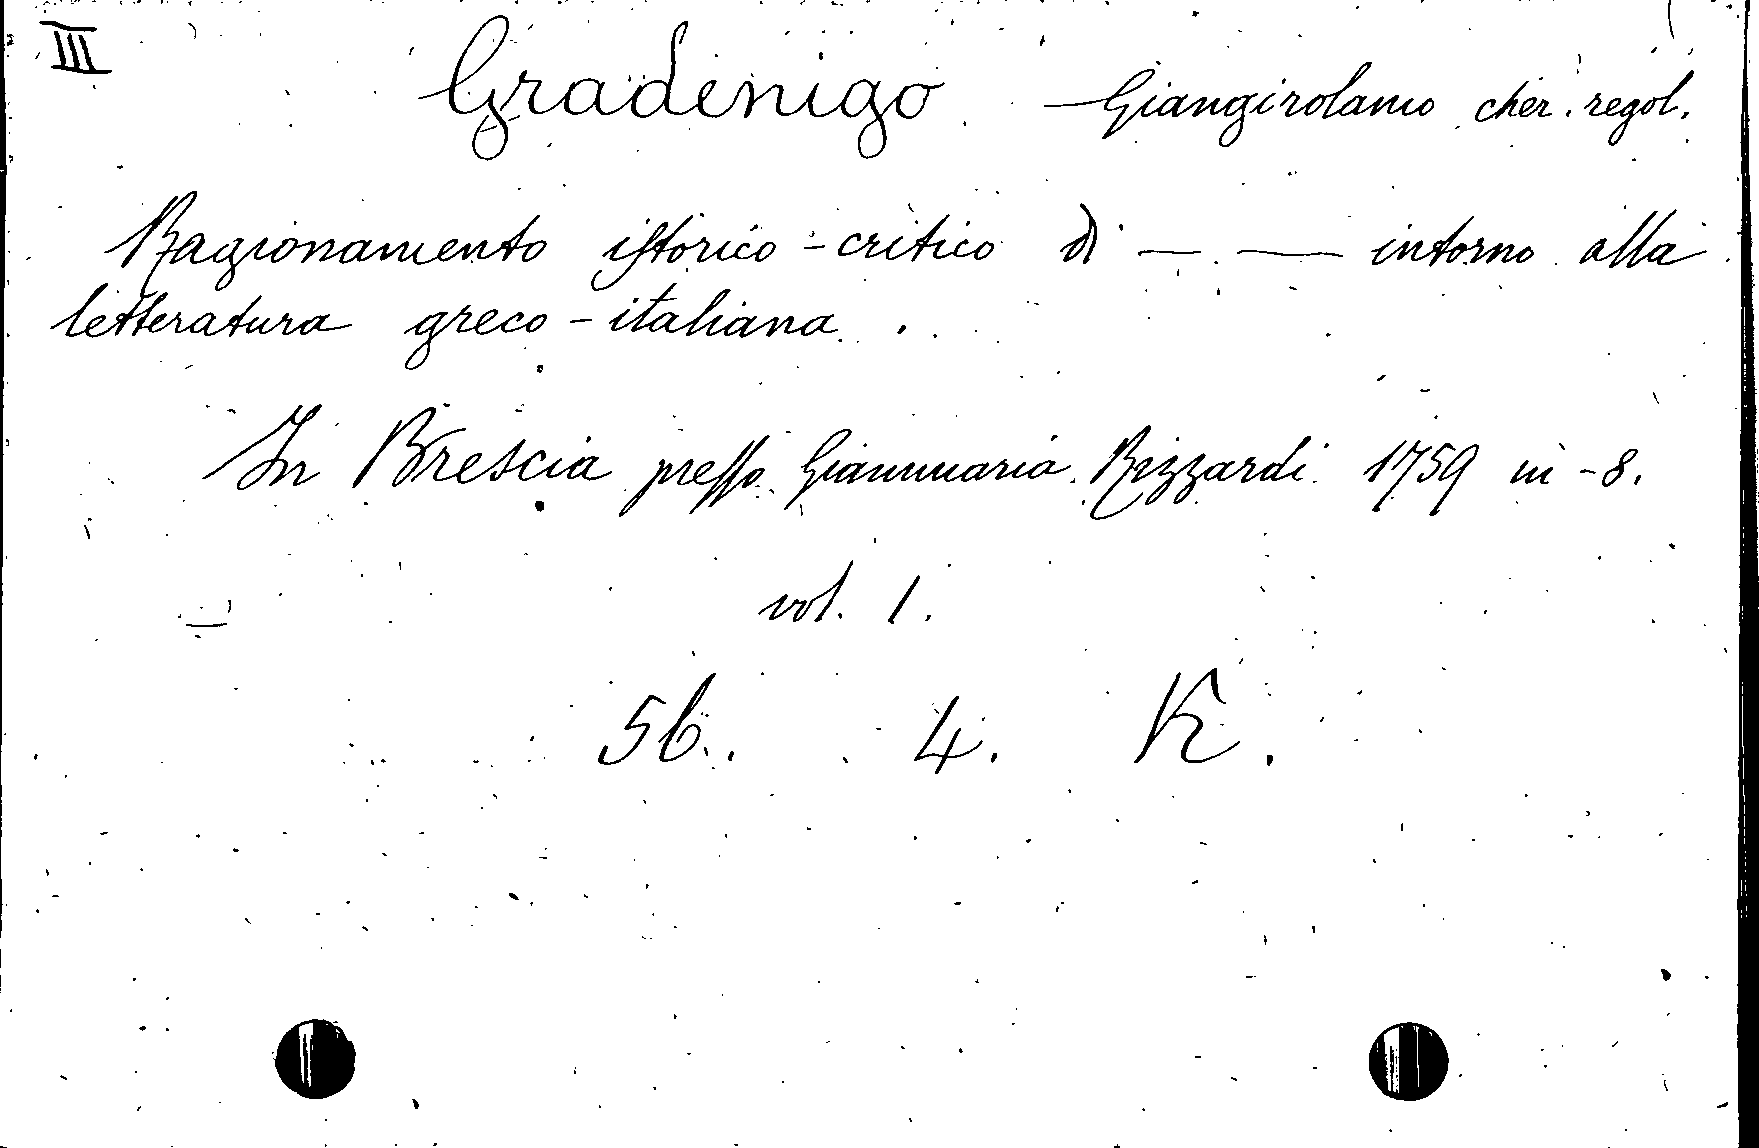 III
Gradenigo Giangirolamo cher. regol.
Ragionamento istorico-critico di — — intorno alla
letteratura greco-italiana.
In Brescia presso Gianmaria Rizzardi 1759 in-8.
vol. 1.
56. 4. K.